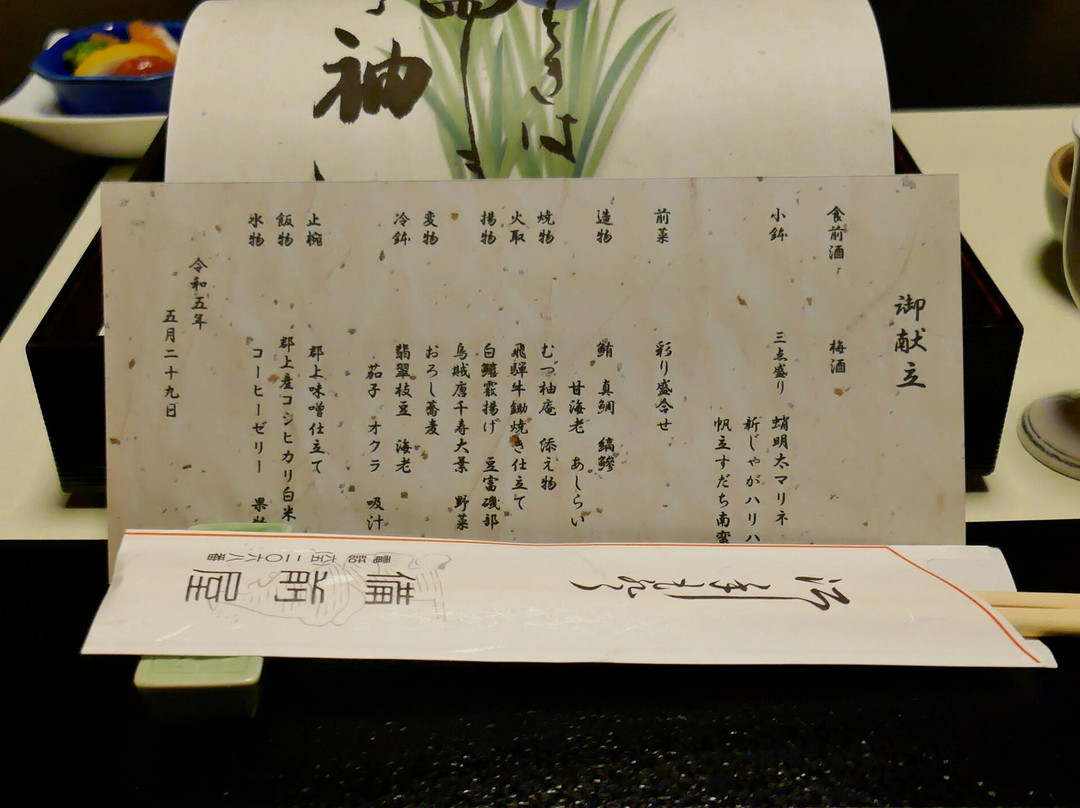 御献立
食前酒 梅酒
小鉢 三点盛り 蛸明太マリネ
新じゃがハリハ
帆立すだち南蛮
前菜 彩り盛合せ
造物 鮪 真鯛 縞鰺
甘海老 あしらい
焼物 むつ柚庵 添え物
火取 飛騨牛鋤焼き仕立て
揚物 白鱚霰揚げ 豆富磯部
烏賊唐千寿大葉 野菜
変物 おろし蕎麦
冷鉢 翡翠枝豆 海老
茄子 オクラ 吸汁
止椀 郡上味噌仕立て
飯物 郡上産コシヒカリ白米
氷物 コーヒーゼリー 果
令和五年
五月二十九日
袖
備前屋